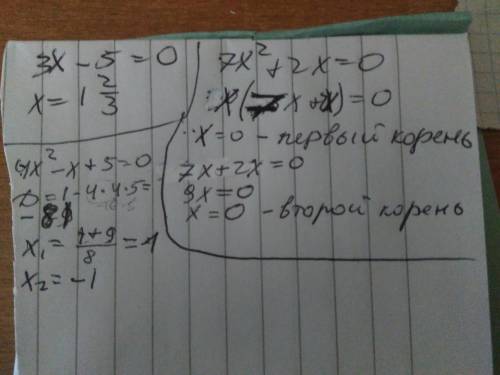 3x - 5 = 0
x = 1 2/3
4x² - x + 5 = 0
D = 1 - 4·4·5 =
x₁ = = 1
x₂ = -1
7x² + 2x = 0
x = 0 - первый корень
7x + 2x = 0
9x = 0
x = 0 - второй корень